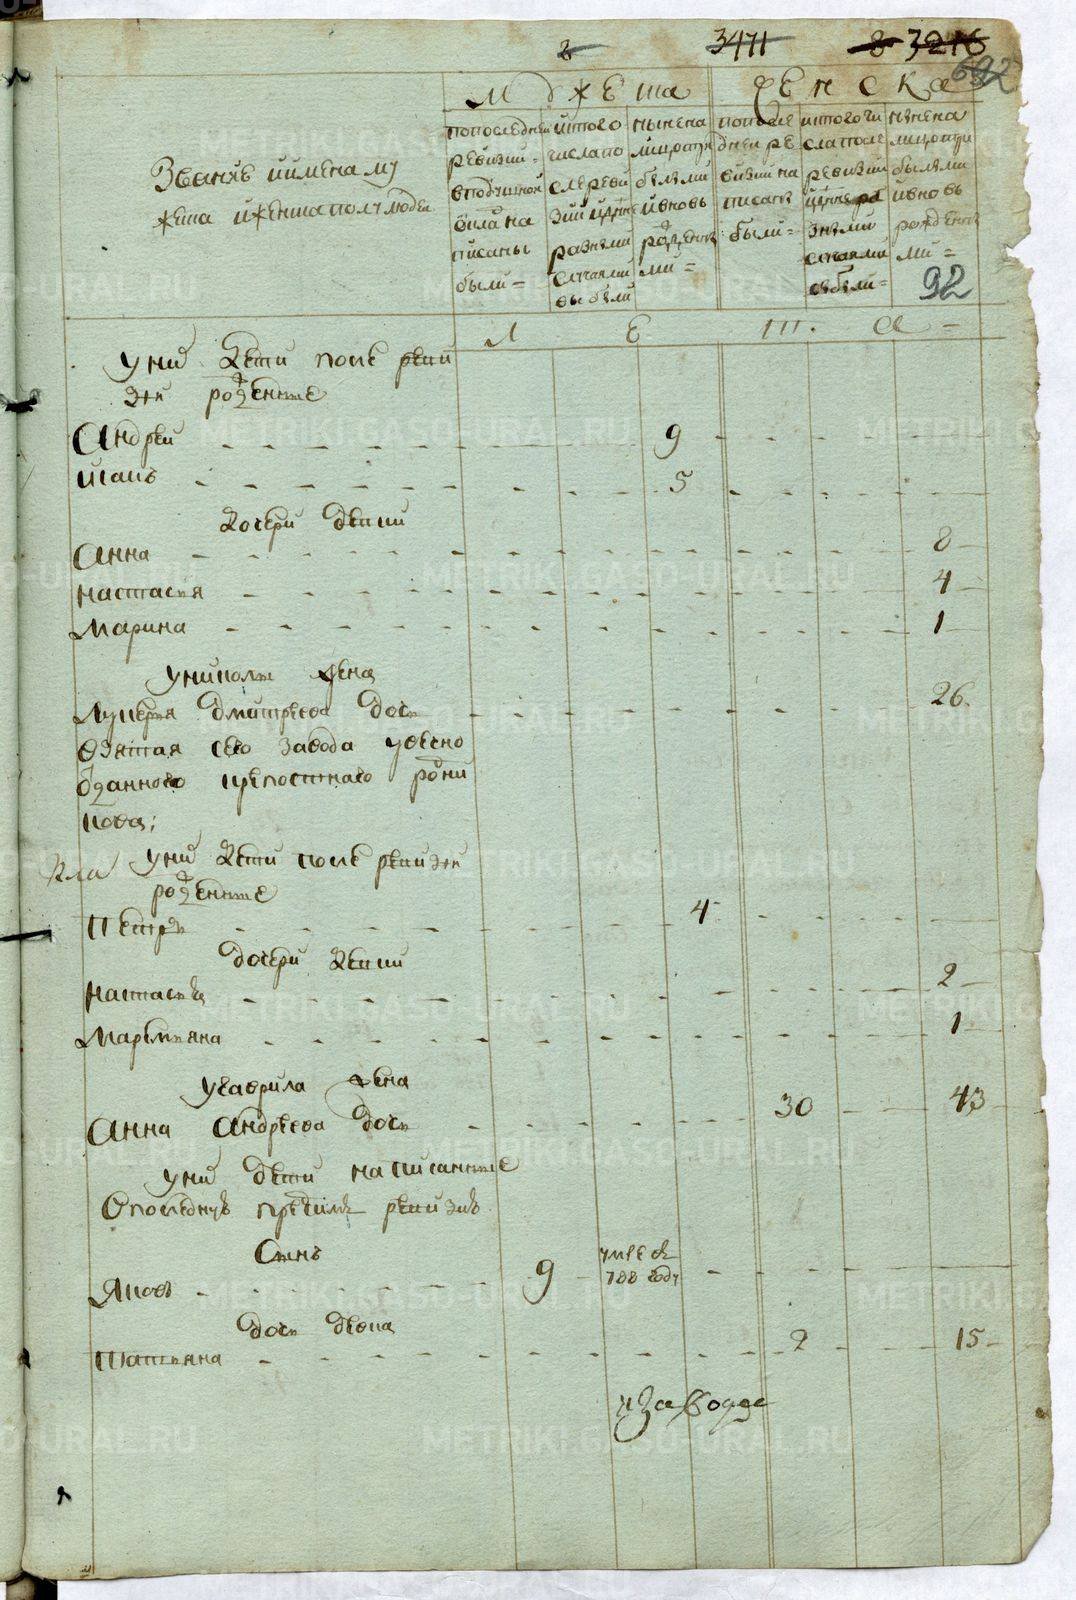 8 3471 8 3216
692
М у ж е ска Ж е н с к а
Званїе и имена му
жеска и женска полу людеи
попоследнеи
ревизии
были на
писаны
были =
и того
числа по
сле реви
зии
разными
случаями
выбыли
ныне на
лицо при
были и
и вновь
рожденны
ми =
после
дней ре
визии на
писаны
были =
ис того чи
сла после
ревизии
разными
случаями
выбыли =
ныне на
лицо при
были и
и вновь
рожденны
ми =
92
Л Е Т. А =
у них дети после реви
зии рожденные
Андреи 9
Иванъ 5
дочери девки
Анна 8
настасья 4
Марина 1
жена
Лукерья дмитрева дочь 26
взятая сего завода у вечно
отданного крепостнаго
у них дети после ревизии
рожденные
Петръ 4
дочери девки
настасья 2
Маремьяна 1
у гаврила жена
Анна Андреева дочь 30 43
у них дети написанные
в последнюю пред симъ ревизию
Сынъ
Яковъ 9 умре в
788 году
дочь девка
Татьяна 2 15
и Заводе